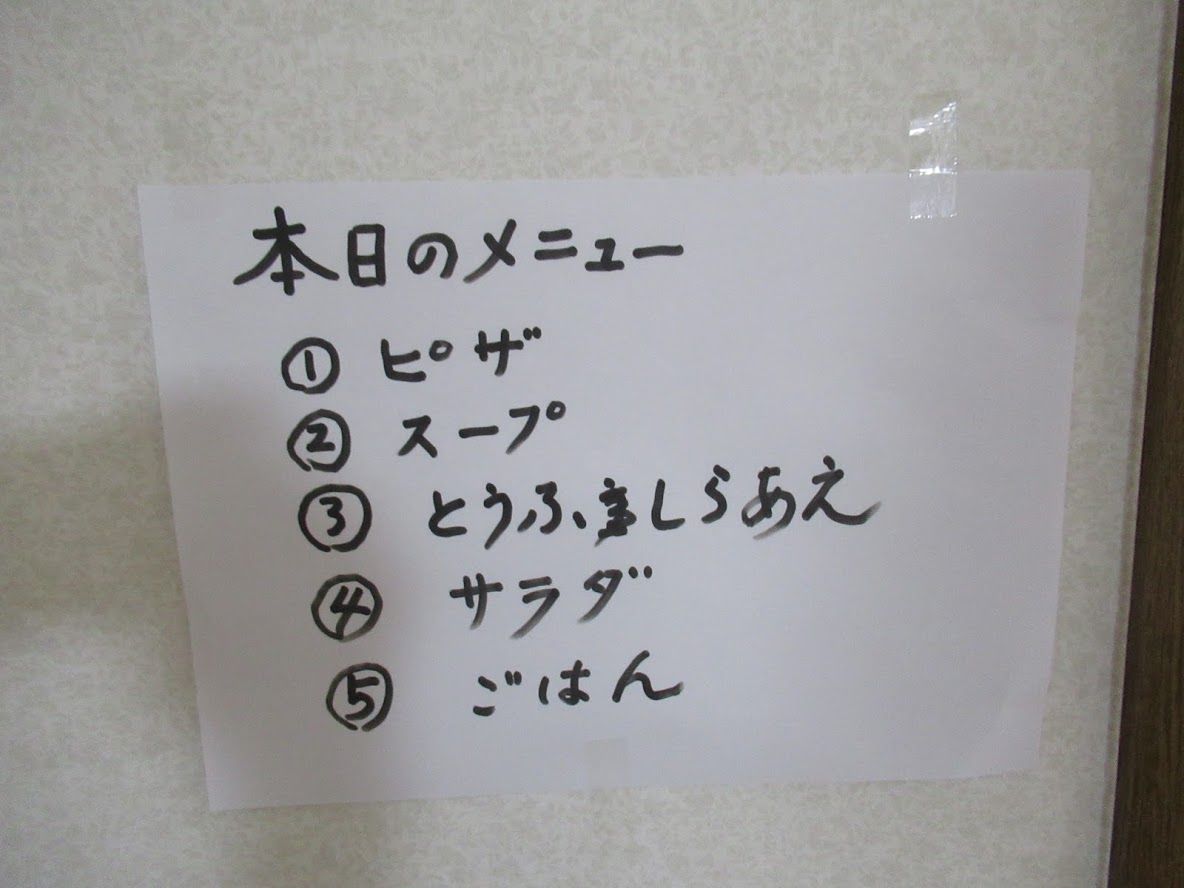 本日のメニュー
① ピザ
② スープ
③ とうふ、しらあえ
④ サラダ
⑤ ごはん